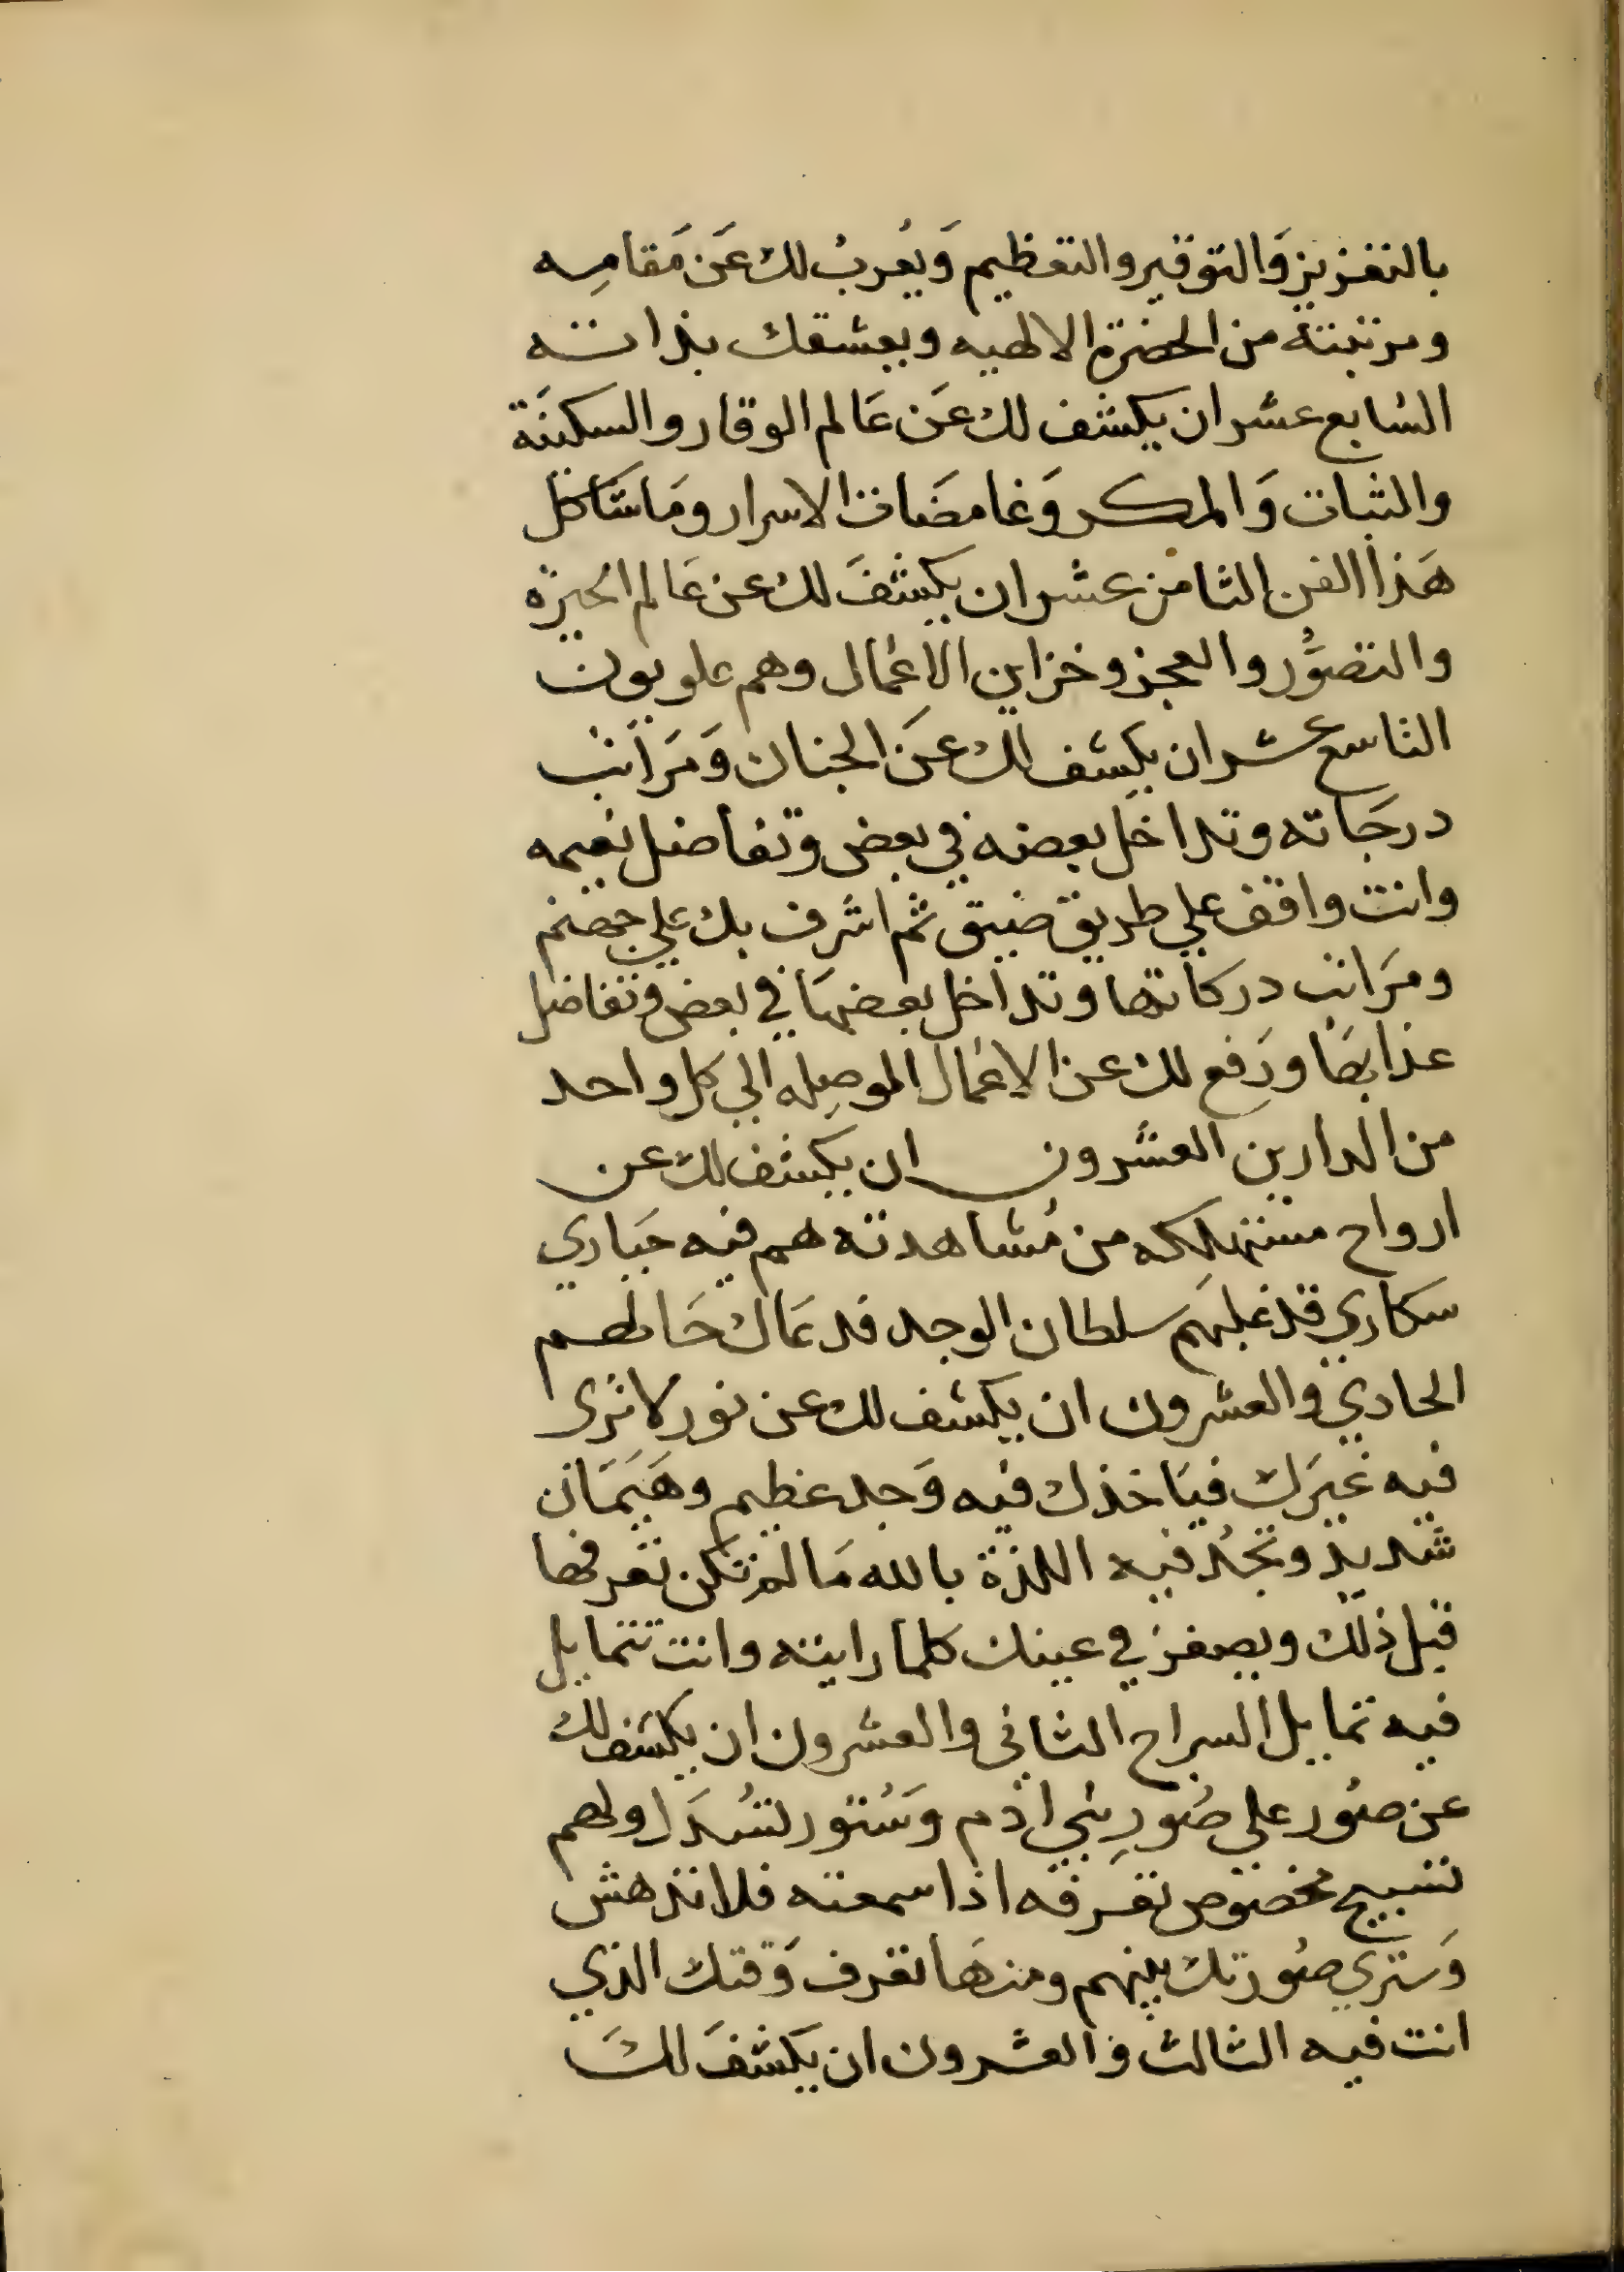 بالتعزيز وَالتوقير والتعظيم وَيُعربُ لك عَن مَقامِه
ومرتبته من الحضرة الالهيه ويعشقك بذاته
السابع عشر ان يكشف لك عَن عَالم الوقار والسكينَة
والثبات وَالمكر وَغامضَات الاسرار ومَا شَاكل
هَذا الفن الثامن عشر ان يكشفَ لك عن عَالم الحيرة
والتصوُّر والعجز وخزاين الاعمال وهم علويون
التاسع عشر ان يكشف لك عَن الجنان وَمَراتب
درجَاته وتداخل بعضه في بعض وتفاضل نعيمه
وانت واقف علي طريق ضيق ثم اشرف بك علي جهنم
ومرَاتب دركاتها وتداخل بعضهَا في بعض وتفاضل
عذابهَا ورَفع لك عن الاعمال الموصِله الي كل واحد
من الدارين العشرون ان يكشف لك عن
ارواح مستهلِكه من مُشاهدته هم فيه حَياري
سكاري قد غلبَهم سلطان الوجد فدعَاك حَالهم
الحادي والعشرون ان يكشف لك عن نور لا تَرى
فيه غيرَك فيَاخذك فيه وَجد عظيم وهَيَمَان
شديد وتجدُ فيه اللذة بالله مَا لم تكن تعرفها
قبل ذلك ويصغر في عينك كلما رايته وانت تتمايل
فيه تمايل السراج الثاني والعشرون ان يكشف لك
عن صُور علي صُورِ بني ادم وَسُتور تسُدَل ولهم
تسبيح مخصوص تعَرفه اذا سمعته فلا تدهش
وَستري صُورتك بينهم ومنهَا تعرف وَقتك الذي
انت فيه الثالث والعشرون ان يكشفَ لكَ